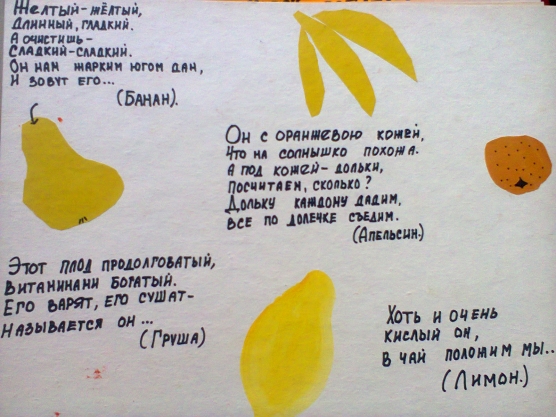 Желтый-жёлтый,
Длинный, гладкий.
А очистишь-
Сладкий-сладкий.
Он нам жарким югом дан,
И зовут его...
(Банан).
Он с оранжевою кожей,
Что на солнышко похожа.
А под кожей-дольки,
Посчитаем, сколько?
Дольку каждому дадим,
Все по долечке съедим.
(Апельсин.)
Этот плод продолговатый,
Витаминами богатый.
Его варят, его сушат-
Называется он ...
(Груша)
Хоть и очень
кислый он,
В чай положим мы..
(Лимон.)